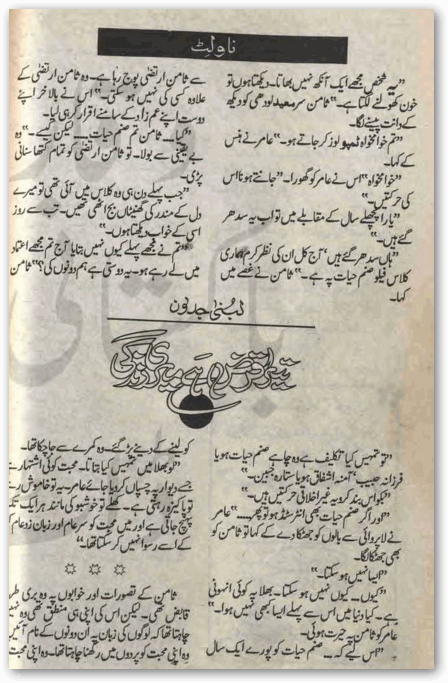 ناولٹ
”یہ شخص مجھے ایک آنکھ نہیں بھاتا۔ دیکھتا ہوں تو
خون کھولنے لگتا ہے۔“ ثامن سر معید لودھی کو دیکھ
کے دانت پیسنے لگا۔
”تم خواہ مخواہ ٹمپو لوز کر جاتے ہو۔“ عامر نے ہنس
کے کہا۔
”خواہ مخواہ“ اس نے عامر کو گھورا۔ ”جانتے ہونا اس
کی حرکتیں۔“
”یار! پچھلے سال کے مقابلے میں تو اب یہ سدھر
گئے ہیں۔“
”ہاں سدھر گئے ہیں‘ آج کل ان کی نظر کرم ہماری
کلاس فیلو صنم حیات پہ ہے۔“ ثامن نے غصے میں
کہا۔
سے ثامن ارتضیٰ پوچ رہا ہے۔ وہ ثامن ارتضیٰ کے
علاوہ کسی کی نہیں ہو سکتی۔“ اس نے بالاخر اپنے
دوست اپنے ہم زاد کے سامنے اقرار کر ہی لیا۔
”کیا۔۔۔ ثامن تم صنم حیات۔۔۔ لیکن کیسے۔“ وہ
بے یقینی سے بولا۔ تو ثامن ارتضیٰ کو تمام کتھا سنانی
پڑی۔
”جب پہلے دن ہی وہ کلاس میں آئی تھی تو میرے
دل کے مندر کی گھنٹیاں بج اٹھی تھیں۔ تب سے روز
اسی کے خواب دیکھتا ہوں۔
”تم نے مجھے پہلے کیوں نہیں بتایا آج تم مجھے اعتماد
میں لے رہے ہو۔ یہ دوستی ہے ہم دونوں کی؟“ ثامن
لبنیٰ جدون
تیرا قرض ہے میری زندگی
”تو تمہیں کیا تکلیف ہے وہ چاہے صنم حیات ہو یا
فرزانہ حبیب‘ آمنہ اشفاق ہو یا ستارہ جبین۔“
”بکواس بند کرو یہ غیر اخلاقی حرکتیں ہیں۔“
”اور اگر صنم حیات بھی انٹرسٹڈ ہو تو پھر۔۔۔“ عامر
نے لاپروائی سے بالوں کو جھٹکا دے کے کہا تو ثامن کو
بھی جھٹکا لگا۔
”ایسا نہیں ہو سکتا۔“
”کیوں۔۔ کیوں نہیں ہو سکتا۔ بھلا یہ کوئی انہونی
ہے۔ کیا دنیا میں اس سے پہلے ایسا بھی نہیں ہوا۔“
عامر کو ثامن پہ حیرت ہوئی۔
”اس لیے کہ۔۔۔ صنم حیات کو پورے ایک سال
کو لینے کے دینے پڑ گئے۔ وہ کمرے سے جا چکا تھا۔
”لو بھلا میں تمہیں کیا بتاتا۔ محبت کوئی اشتہار ہے
جسے دیوار پہ چسپاں کر دیا جائے عامر۔ یہ تو خاموش رہے
تو پاکیزہ رہتی ہے۔ کھلے تو خوشبو کی مانند ہر ایک تک
پہنچ جاتی ہے اور میں محبت کو سرعام اور زبان زد عام کر
کے اسے رسوا نہیں کر سکتا تھا۔“
☼ ☼ ☼
ثامن کے تصورات اور خوابوں پہ وہ پری طرح
قابض تھی۔ لیکن اس کی اپنی ہی منطق تھی وہ نہیں
چاہتا تھا کہ لوگوں کی زبان پہ ان دونوں کے نام آئیں
وہ اپنی محبت کو پردوں میں رکھنا چاہتا تھا۔ وہ اپنی محبت